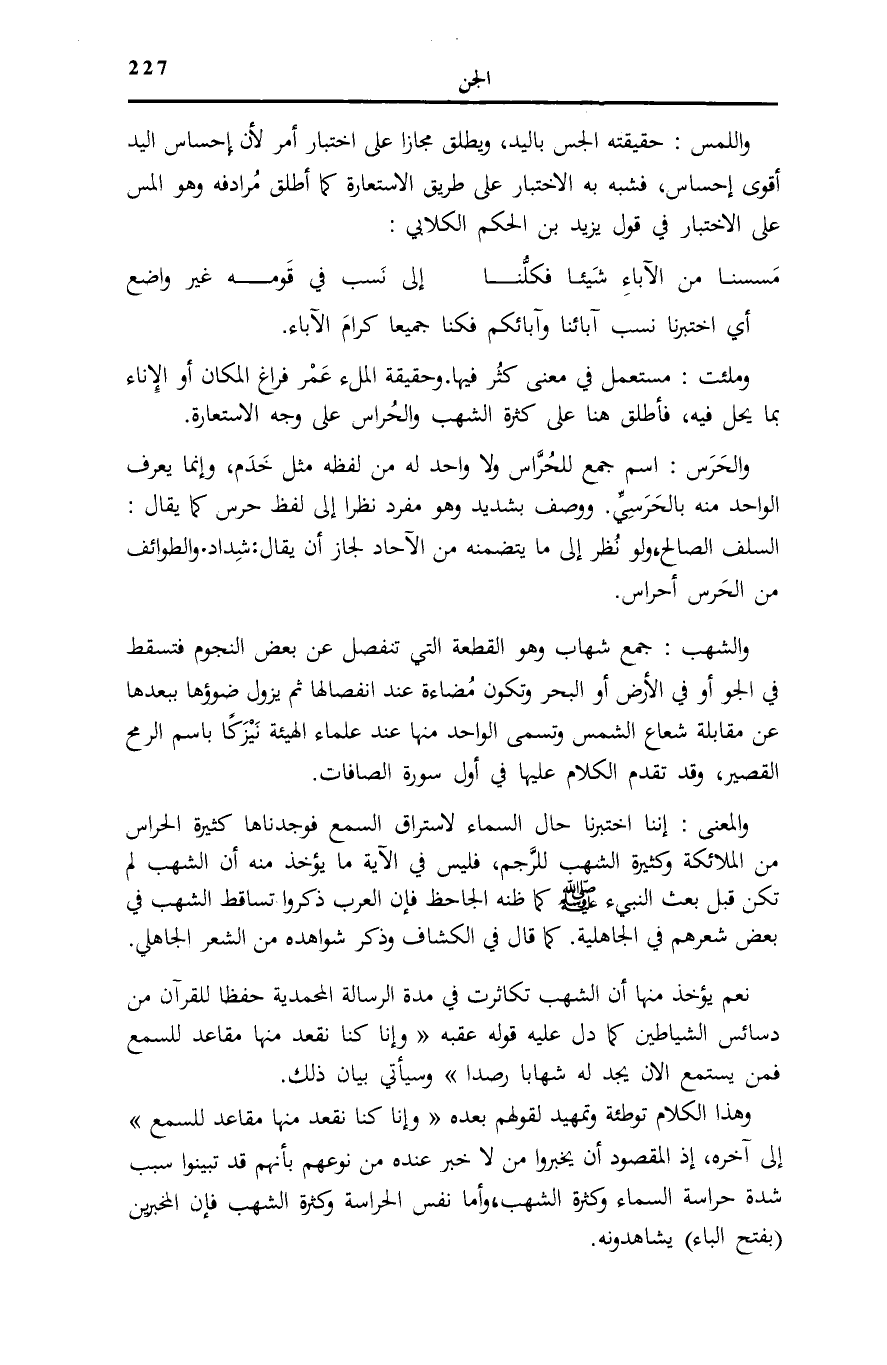 227
الجن
واللمس : حقيقته الجس باليد، ويطلق مجازا على اختبار أمر لأن إحساس اليد
أقوى إحساس، فشبه به الاختبار على طريق الاستعارة كما أطلق مُرادفه وهو المس
على الاختبار في قول يزيد بن الحكم الكلابي :
مَسسنا من الآباءِ شَيئا فكلُّنا إلى نَسب في قَومه غير واضع
أي اختبرنا نسب آبائنا وآبائكم فكنا جميعا كرامَ الآباء.
وملئت : مستعمل في معنى كثُر فيها.وحقيقة الملء عَمْر فراغ المكان أو الإناء
بما يحل فيه، فأطلق هنا على كثرة الشهب والحُراس على وجه الاستعارة.
والحَرَس : اسم جمع للحُرَّاس ولا واحد له من لفظه مثل خَدَم، وإنما يعرف
الواحد منه بالحَرَسِيِّ. ووصف بشديد وهو مفرد نظرا إلى لفظ حرس كما يقال :
السلف الصالح،ولو نُظر إلى ما يتضمنه من الآحاد لجاز أن يقال:شِداد.والطوائف
من الحَرس أحراس.
والشهب : جمع شهاب وهو القطعة التي تنفصل عن بعض النجوم فتسقط
في الجو أو في الأرض أو البحر وتكون مُضاءة عند انفصالها ثم يزول ضوؤها ببعدها
عن مقابلة شعاع الشمس وتسمى الواحد منها عند علماء الهيئة نَيْزَكًا باسم الرمح
القصير، وقد تقدم الكلام عليها في أول سورة الصافات.
والمعنى : إننا اختبرنا حال السماء لاستراق السمع فوجدناها كثيرة الحراس
من الملائكة وكثيرة الشهب للرَّجم، فليس في الآية ما يؤخذ منه أن الشهب لم
تكن قبل بعث النبيء ﷺ كما ظنه الجاحظ فإن العرب ذكروا تساقط الشهب في
بعض شعرهم في الجاهلية. كما قال في الكشاف وذكر شواهده من الشعر الجاهلي.
نعم يؤخذ منها أن الشهب تكاثرت في مدة الرسالة المحمدية حفظا للقرآن من
دسائس الشياطين كما دل عليه قوله عقبه « وإنا كنا نقعد منها مقاعد للسمع
فمن يستمع الان يجد له شهابا رصدا » وسيأتي بيان ذلك.
وهذا الكلام توطئة وتمهيد لقولهم بعده « وإنا كنا نقعد منها مقاعد للسمع »
إلى آخره، إذ المقصود أن يخبروا من لا خبر عنده من نوعهم بأنهم قد تبينوا سبب
شدة حراسة السماء وكثرة الشهب،وأما نفس الحراسة وكثرة الشهب فإن المخبرين
(بفتح الباء) يشاهدونه.